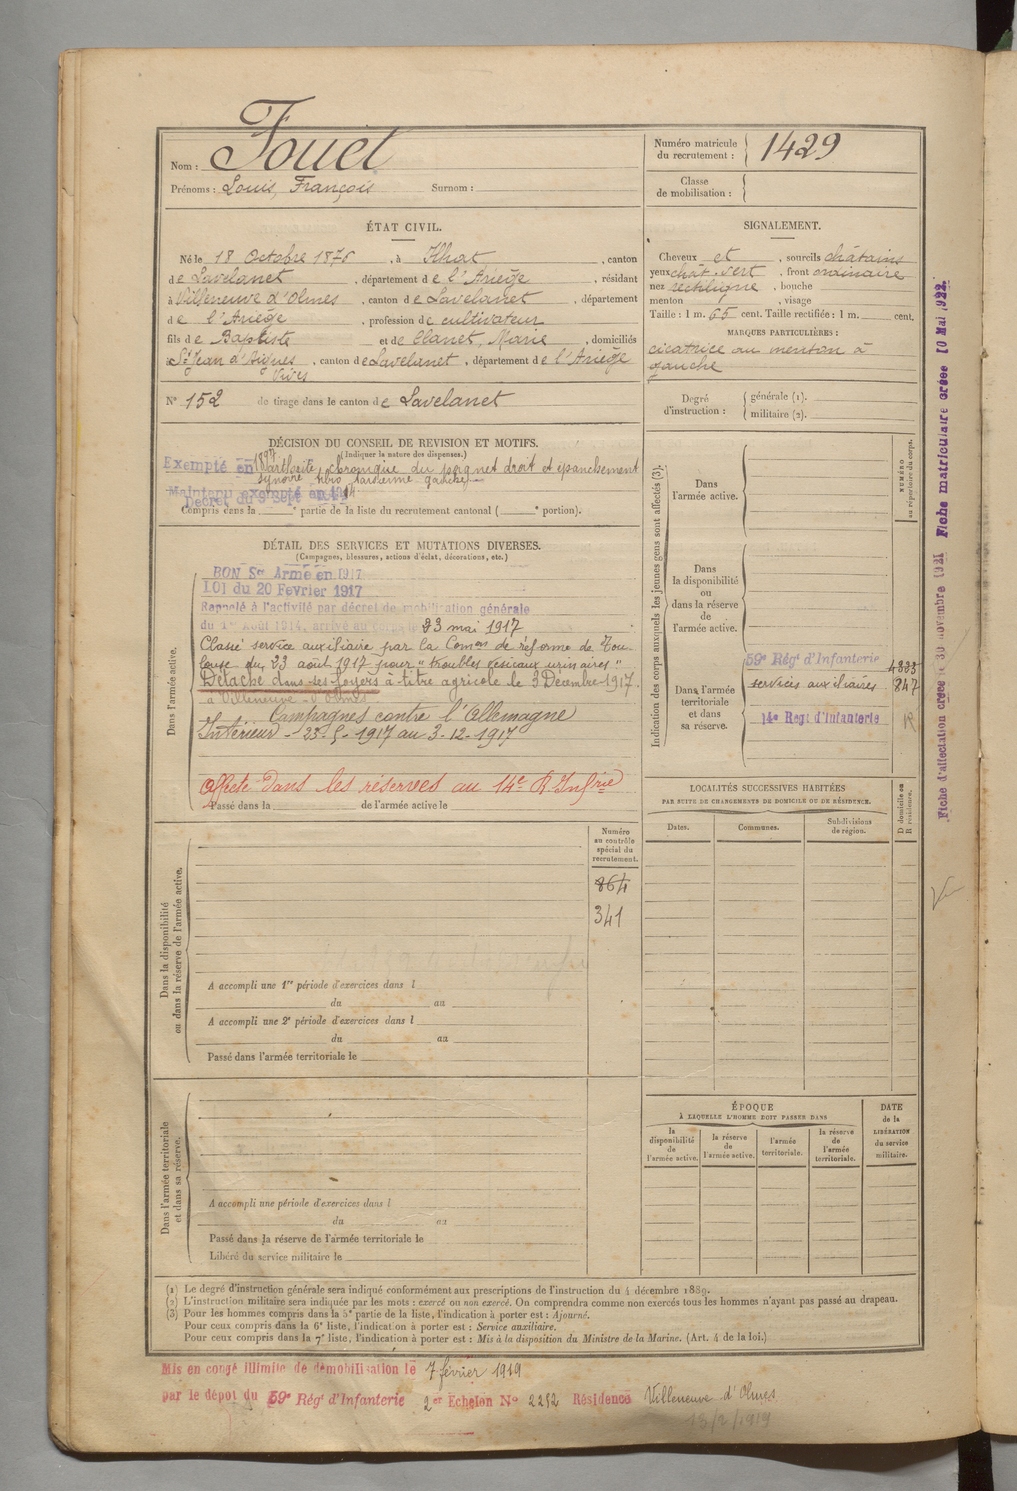 Nom : Fouet
Prénoms : Louis, François Surnom :
Numéro matricule du recrutement : 1429
Classe de mobilisation :
ÉTAT CIVIL.
Né le 18 Octobre 1876, à Ilhat, canton
de Lavelanet, département de l'Ariège, résidant
à Villeneuve d'Olmes, canton de Lavelanet, département
de l'Ariège, profession de cultivateur
fils de Baptiste et de Clanet, Marie, domiciliés
à St Jean d'Aigues Vives, canton de Lavelanet, département de l'Ariège
N° 152 de tirage dans le canton de Lavelanet
SIGNALEMENT.
Cheveux et, sourcils châtains
yeux chât. vert, front ordinaire
nez rectiligne, bouche
menton, visage
Taille : 1 m. 65 cent. Taille rectifiée : 1 m. cent.
MARQUES PARTICULIÈRES :
cicatrice au menton à
gauche
Degré d'instruction : générale (1).
militaire (2).
DÉCISION DU CONSEIL DE REVISION ET MOTIFS.
(Indiquer la nature des dispenses.)
Exempté en 1897 arthrite chronique du poignet droit et épanchement
synovie tibio tarsienne gauche
Maintenu exempté en 1914
Décret du 9 Sept 1914
Compris dans la e partie de la liste du recrutement cantonal ( e portion).
DÉTAIL DES SERVICES ET MUTATIONS DIVERSES.
(Campagnes, blessures, actions d'éclat, décorations, etc.)
Dans l'armée active.
BON Sce Armé en 1917
LOI du 20 Février 1917
Rappelé à l'activité par décret de mobilisation générale
du 1er Août 1914, arrivé au corps le 23 mai 1917
Classé service auxiliaire par la Comon de réforme de Tou-
louse du 23 août 1917 pour "troubles vésicaux urinaires"
Détaché dans ses foyers à titre agricole le 3 Décembre 1917.
à Villeneuve-d'Olmes
Campagnes contre l'Allemagne
Intérieur - 23-5-1917 au 3-12-1917
Affecté dans les réserves au 14e R. Infrie
Passé dans la de l'armée active le
Indication des corps auxquels les jeunes gens sont affectés (3).
NUMÉRO au répertoire du corps.
Dans l'armée active.
Dans la disponibilité ou dans la réserve de l'armée active.
Dans l'armée territoriale et dans sa réserve.
59e Régt d'Infanterie 4333
services auxiliaires 847
14e Regt d'Infanterie R
LOCALITÉS SUCCESSIVES HABITÉES
PAR SUITE DE CHANGEMENTS DE DOMICILE OU DE RÉSIDENCE.
Dates. Communes. Subdivisions de région. D domicile ou R résidence.
Numéro au contrôle spécial du recrutement.
864
341
Dans la disponibilité ou dans la réserve de l'armée active.
A accompli une 1re période d'exercices dans l
du au
A accompli une 2e période d'exercices dans l
du au
Passé dans l'armée territoriale le
Dans l'armée territoriale et dans sa réserve.
A accompli une période d'exercices dans l
du au
Passé dans la réserve de l'armée territoriale le
Libéré du service militaire le
ÉPOQUE
À LAQUELLE L'HOMME DOIT PASSER DANS
la disponibilité de l'armée active. la réserve de l'armée active. l'armée territoriale. la réserve de l'armée territoriale.
DATE de la LIBÉRATION du service militaire.
(1) Le degré d'instruction générale sera indiqué conformément aux prescriptions de l'instruction du 4 décembre 1889.
(2) L'instruction militaire sera indiquée par les mots : exercé ou non exercé. On comprendra comme non exercés tous les hommes n'ayant pas passé au drapeau.
(3) Pour les hommes compris dans la 5e partie de la liste, l'indication à porter est : Ajourné.
Pour ceux compris dans la 6e liste, l'indication à porter est : Service auxiliaire.
Pour ceux compris dans la 7e liste, l'indication à porter est : Mis à la disposition du Ministre de la Marine. (Art. 4 de la loi.)
Mis en congé illimité de démobilisation le 7 février 1919
par le dépôt du 59e Régt d'Infanterie 2e Echelon N° 2252 Résidence Villeneuve d'Olmes
13/2/1919
Fiche d'affectation créée le 30 novembre 1921 Fiche matriculaire créée 10 Mai 1922.